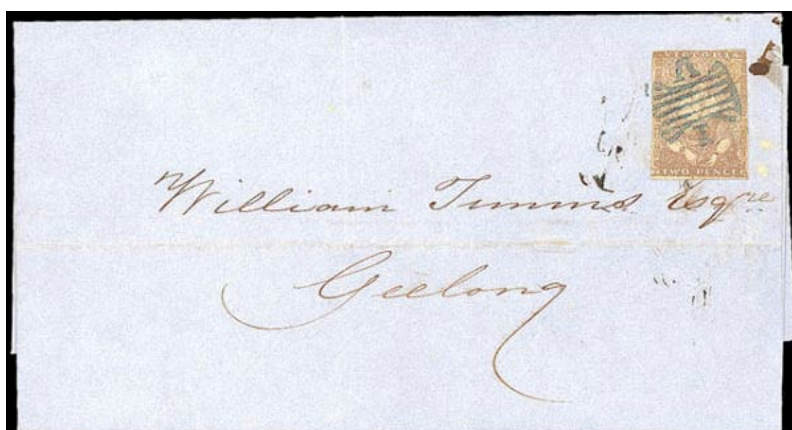 VICTORIA
TWO PENCE
William Timms Esqre
Geelong